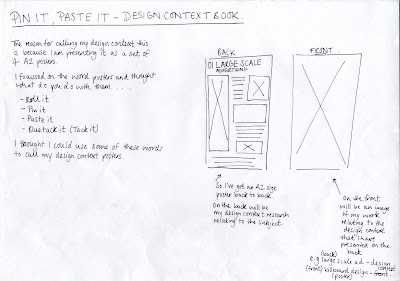 PIN IT, PASTE IT - DESIGN CONTEXT BOOK.
The reason for calling my design context this
is because I am presenting it as a set of
4 A2 posters.
I focussed on the word posters and thought
what do you do with them....
- Roll it
- Pin it
- Paste it
- Bluetack it (Tack it)
I thought I could use some of these words
to call my design context posters.
BACK
01 LARGE SCALE
ADVERTISING
So I've got an A2 size
poster back to back.
On the back will be
my design context research
relating to the subject.
FRONT
On the front
will be an image
of my work
relating to the
design context
that I have
presented on the
back
(back)
e.g large scale ad - design context
(front) billboard design - front
(poster)